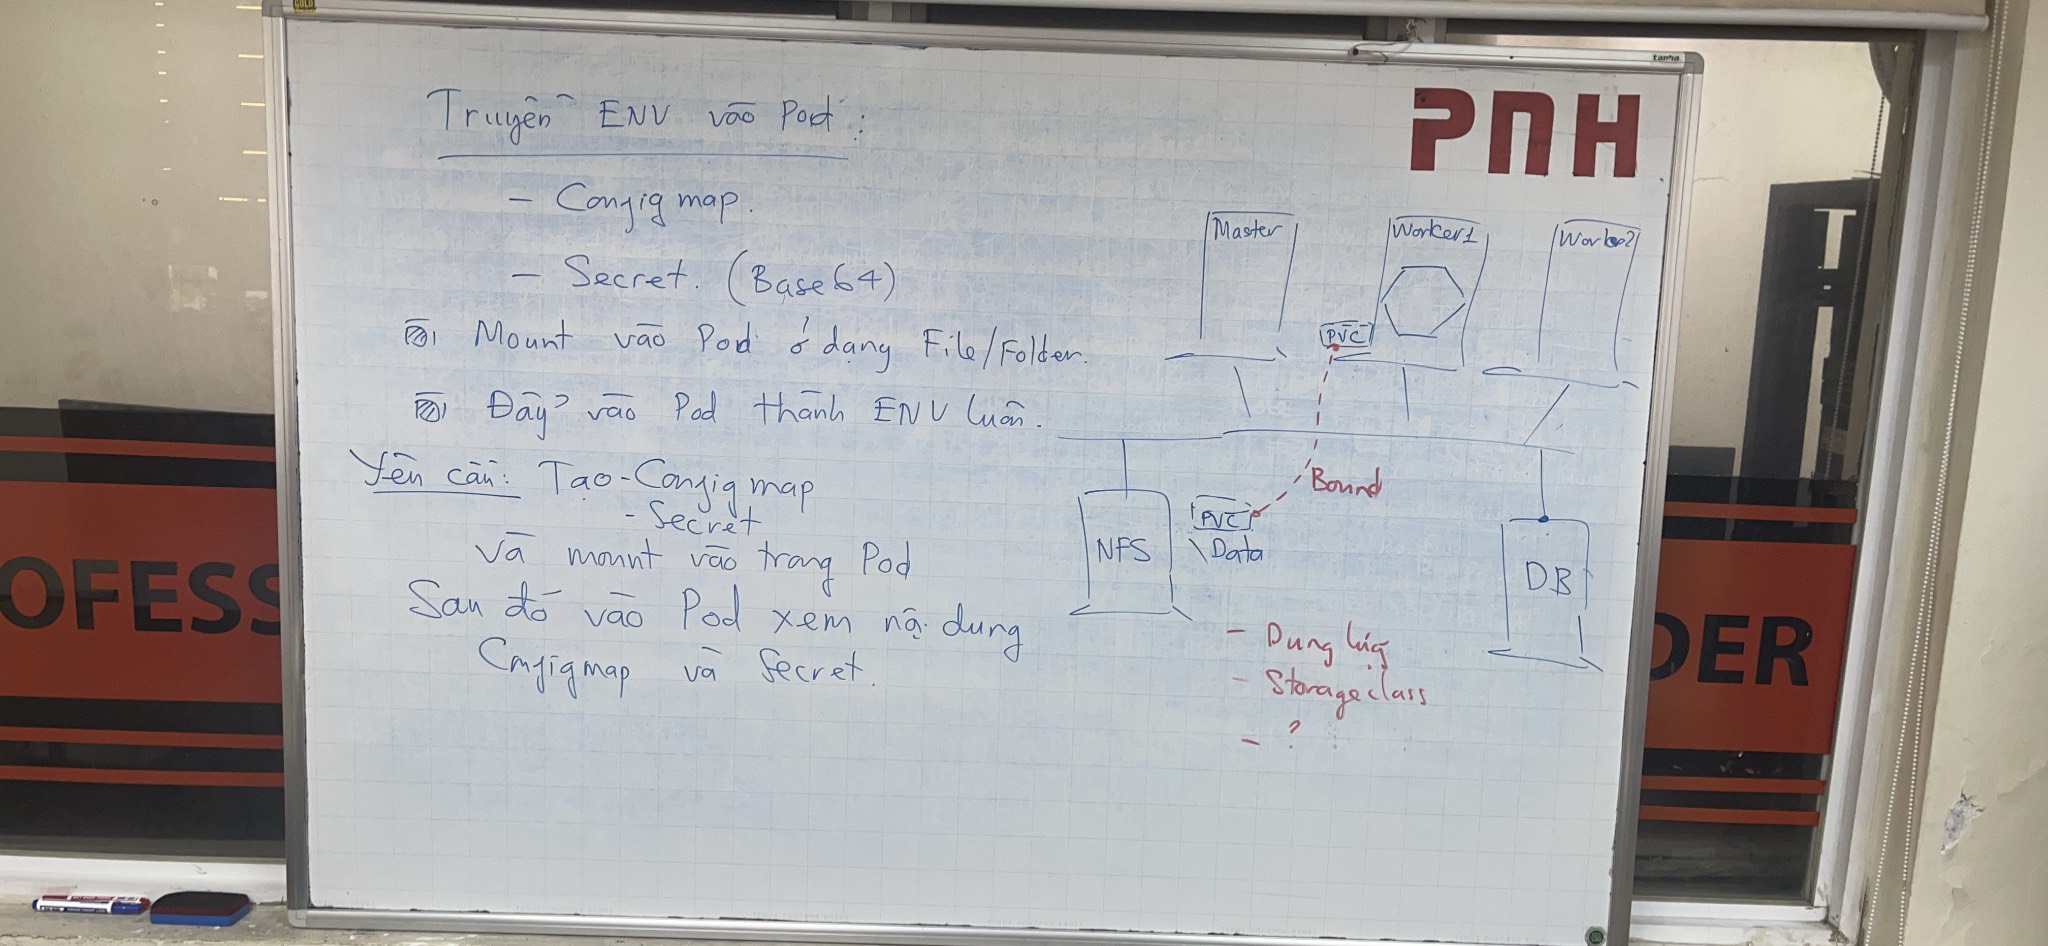 Truyền ENV vào Pod:
- Configmap.
- Secret. (Base64)
Mount vào Pod ở dạng File/Folder.
Đẩy vào Pod thành ENV luôn.
Yêu cầu: Tạo - Configmap
- Secret
và mount vào trong Pod
Sau đó vào Pod xem nội dung
Configmap và Secret.
PNH
Master
Worker1
Worker2
PVC
Bound
NFS
PVC
\Data
DB
- Dung lượng
- Storageclass
- ?
OFESS
DER
GOLD